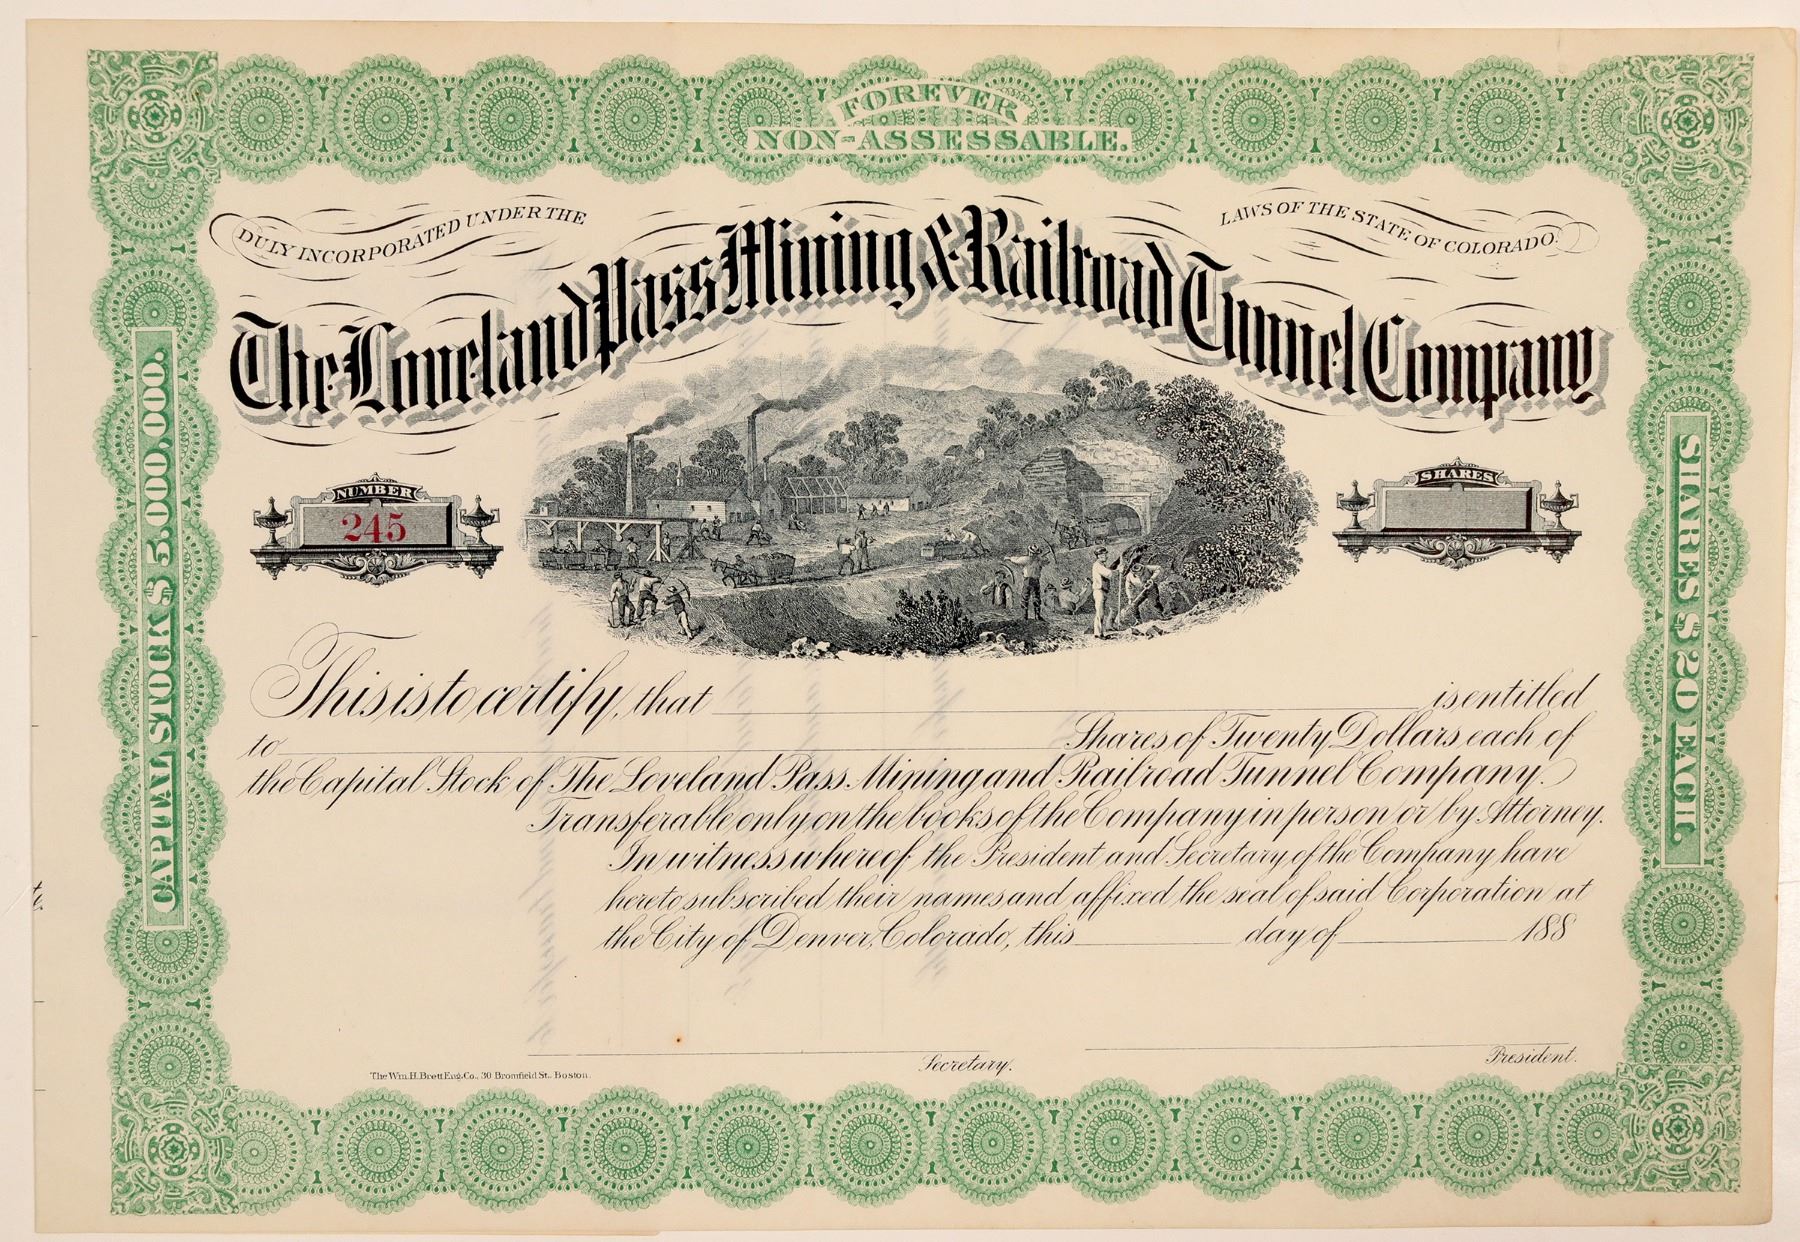 FOREVER
NON-ASSESSABLE.
DULY INCORPORATED UNDER THE
LAWS OF THE STATE OF COLORADO.
The Loveland Pass Mining & Railroad Tunnel Company
CAPITAL STOCK $ 5.000.000.
SHARES $ 20 EACH.
NUMBER
245
SHARES
This is to certify, that is entitled
to Shares of Twenty Dollars each of
the Capital Stock of The Loveland Pass Mining and Railroad Tunnel Company.
Transferable only on the books of the Company in person or by Attorney.
In witness whereof the President and Secretary of the Company have
hereto subscribed their names and affixed the seal of said Corporation at
the City of Denver, Colorado, this day of 188
Secretary.
President.
The Wm. H. Brett Eng. Co., 30 Bromfield St. Boston.